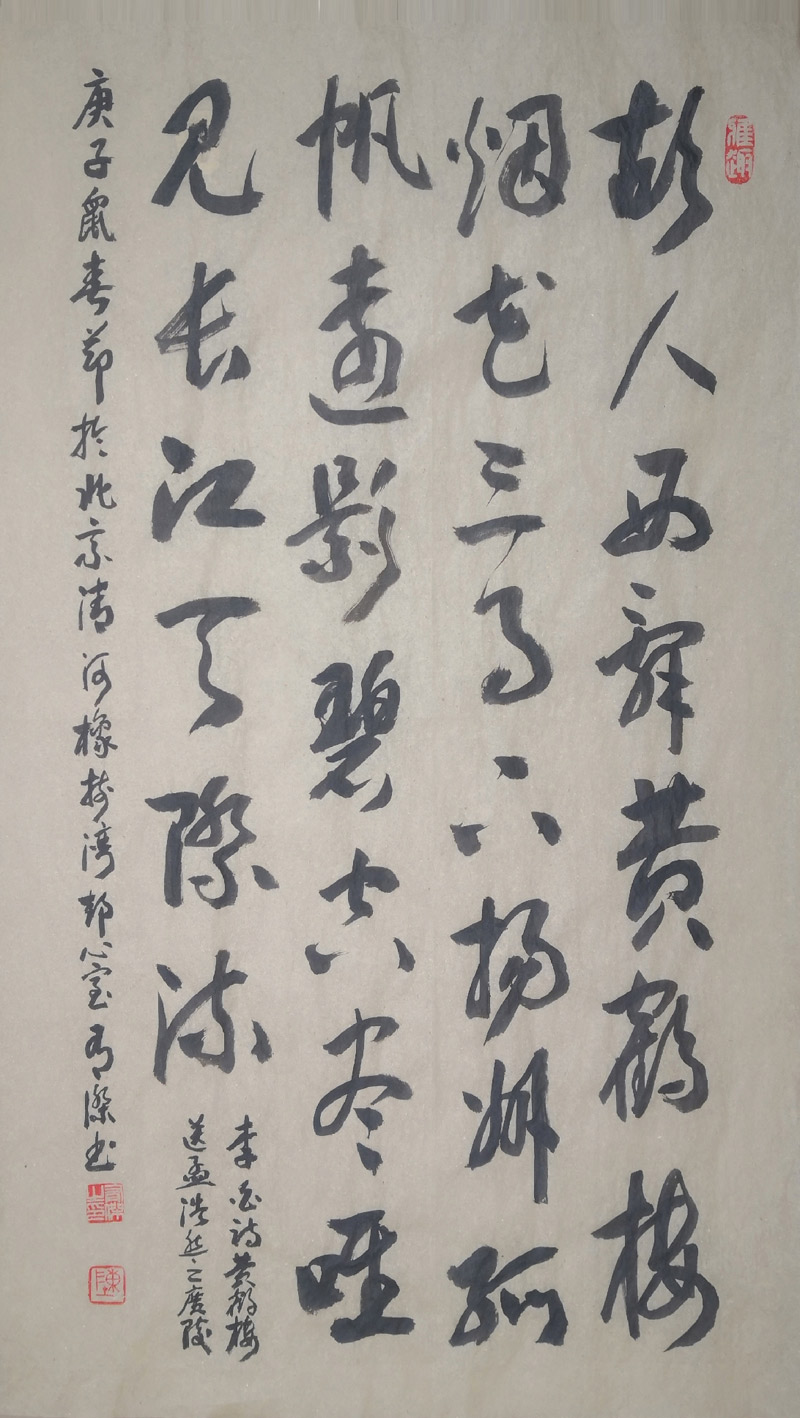 雅趣
故人西辞黄鹤楼
烟花三月下扬州孤
帆远影碧空尽唯
见长江天际流
李白诗黄鹤楼
送孟浩然之广陵
庚子鼠春节於北京清河橡树湾静心室有际书
陳